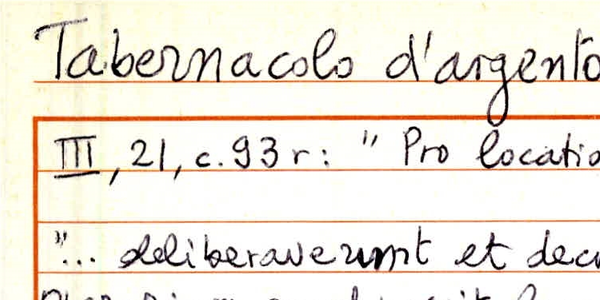 Tabernacolo d'argento
III, 21, c. 93 r: " Pro locatio
"... deliberaverunt et decr